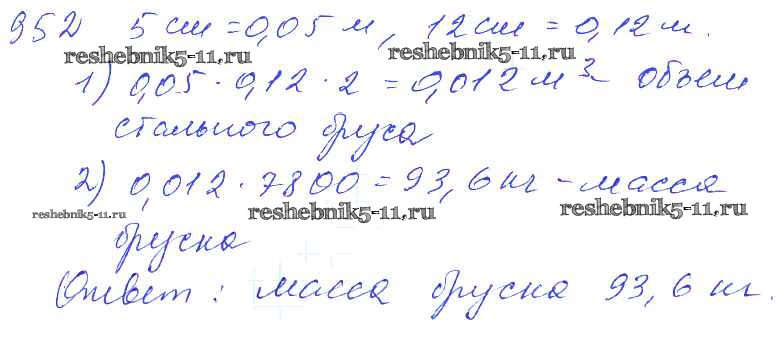 952 5 см = 0,05 м, 12 см = 0,12 м.
reshebnik5-11.ru reshebnik5-11.ru
1) 0,05 · 0,12 · 2 = 0,012 м³ - объем
стального бруса
2) 0,012 · 7800 = 93,6 кг - масса
reshebnik5-11.ru reshebnik5-11.ru reshebnik5-11.ru
бруска
Ответ: масса бруска 93,6 кг.